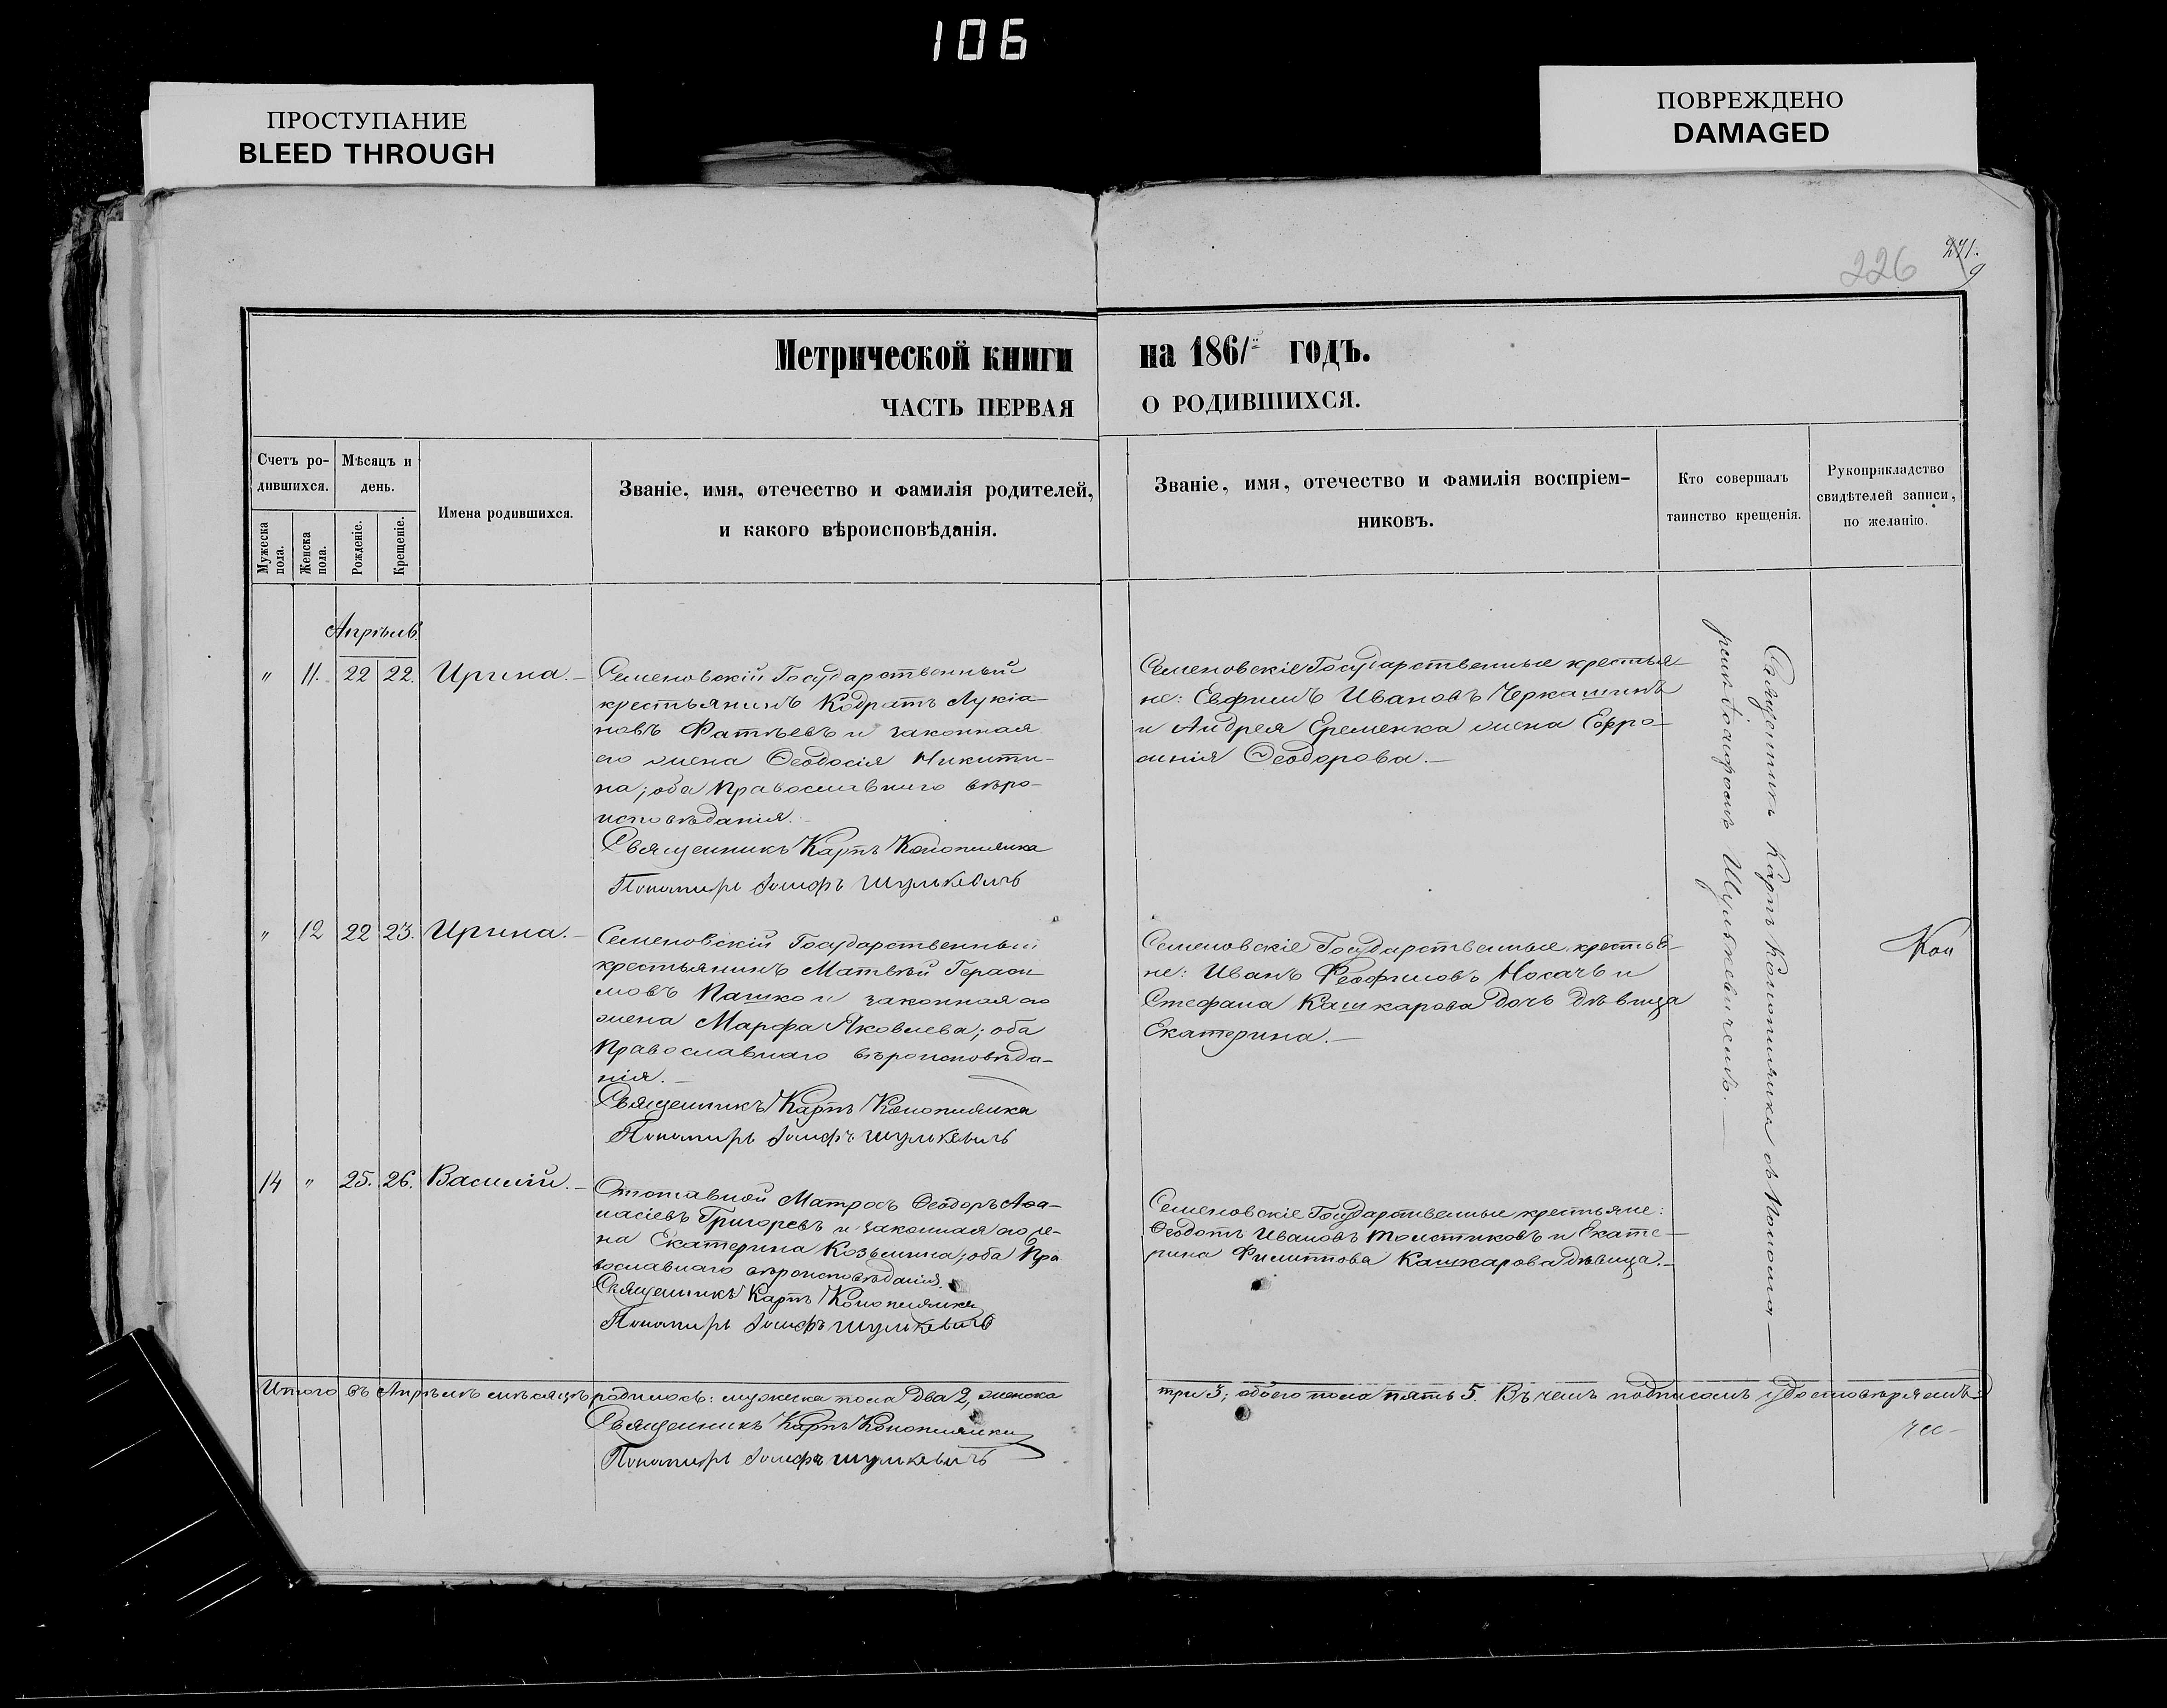 106
ПРОСТУПАНИЕ
BLEED THROUGH
ПОВРЕЖДЕНО
DAMAGED
226
271.
9
Метрической книги на 1861й годъ.
ЧАСТЬ ПЕРВАЯ О РОДИВШИХСЯ.
Счетъ ро-
дившихся.
Мужеска пола.
Женска пола.
Мѣсяцъ и
день.
Рожденіе.
Крещеніе.
Имена родившихся.
Званіе, имя, отечество и фамилія родителей,
и какого вѣроисповѣданія.
Званіе, имя, отечество и фамилія воспріем-
никовъ.
Кто совершалъ
таинство крещенія.
Рукоприкладство
свидѣтелей записи,
по желанію.
Апрѣль.
" 11. 22 22. Ирина.—
Семеновскій Государственный
крестьянинъ Кодратъ Лукіа-
новъ Фатѣевъ и законная
его жена Ѳеодосія Никити-
на; оба Православнаго вѣро-
исповѣданія.—
Священникъ Карпъ Конопляика
Пономарь Іосифъ Шулькевичъ
Семеновскіе Государственные крестья-
не: Евфимъ Ивановъ Черкашинъ
и Андрея Еременка жена Ефро-
синія Ѳеодорова.—
" 12 22 23. Ирина.—
Семеновскій Государственный
крестьянинъ Матвѣй Гераси-
мовъ Пашко и законная его
жена Марфа Яковлева; оба
Православнаго вѣроисповѣда-
нія.—
Священникъ Карпъ Конопляика
Пономарь Іосифъ Шулькевичъ
Семеновскіе Государственные крестья-
не: Иванъ Феофиловъ Носачъ и
Стефана Кашкарова дочь дѣвица
Екатерина.—
Кон
14 " 25. 26. Василій.—
Отставной Матросъ Ѳеодоръ Аѳа-
насіевъ Григорьевъ и законная его же-
на Екатерина Козьмина; оба Пра
вославнаго вѣроисповѣданія.
Священникъ Карпъ Конопляика
Пономарь Іосифъ Шулькевичъ
Семеновскіе Государственные крестьяне:
Ѳеодотъ Ивановъ Толстиковъ и Екате-
рина Филиппова Кашкарова дѣвица.—
Священникъ Карпъ Конопляика съ Понома—
ремъ Іосифомъ Шулькевичемъ.—
Итого въ Апрѣлѣ мѣсяцѣ родилось: мужеска пола два 2, женска три 3; обоего пола пять 5. Въ чемъ подписомъ удостовѣряемъ:
Священникъ Карпъ Конопляика
Пономарь Іосифъ Шулькевичъ